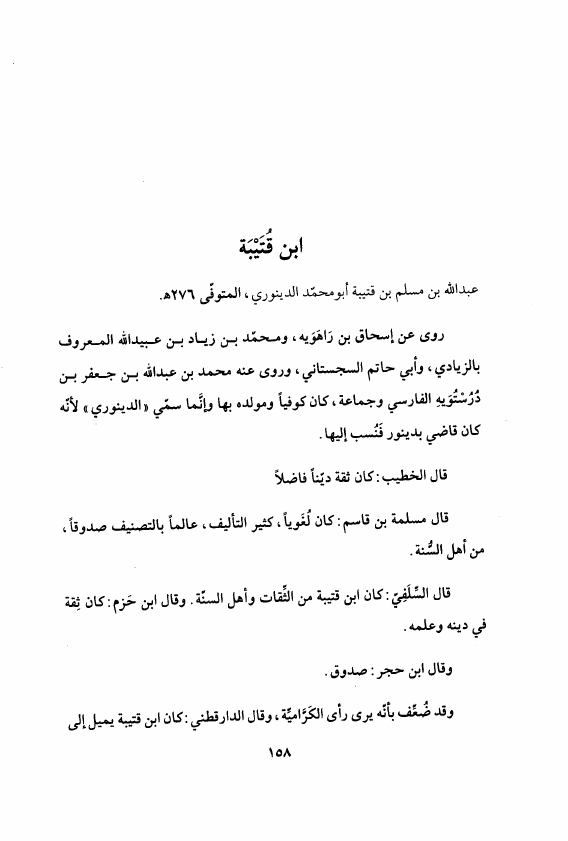 ابن قُتَيْبَة
عبدالله بن مسلم بن قتيبة أبومحمّد الدينوري، المتوفّى ٢٧٦هـ.
روى عن إسحاق بن رَاهَوَيه، ومحمّد بن زياد بن عبيدالله المعروف
بالزيادي، وأبي حاتم السجستاني، وروى عنه محمد بن عبدالله بن جعفر بن
دُرُسْتُوَيهِ الفارسي وجماعة، كان كوفياً ومولده بها وإنَّما سمّي «الدينوري» لأنّه
كان قاضي بدينور فَنُسب إليها.
قال الخطيب: كان ثقة ديّناً فاضلاً
قال مسلمة بن قاسم: كان لُغَوياً، كثير التأليف، عالماً بالتصنيف صدوقاً،
من أهل السُّنة.
قال السِّلَفِيّ: كان ابن قتيبة من الثِّقات وأهل السنّة. وقال ابن حَزم: كان ثِقة
في دينه وعلمه.
وقال ابن حجر: صدوق.
وقد ضُعِّف بأنّه يرى رأى الكَرَّاميِّة، وقال الدارقطني: كان ابن قتيبة يميل إلى
١٥٨